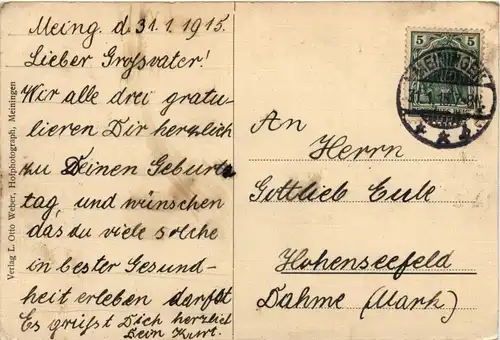 Meing. d. 31.1.1915.
Lieber Grossvater!
Wir alle drei gratu-
lieren Dir herzlich
zu Deinen Geburts
tag, und wünschen
das du viele solche
in bester Gesund-
heit erleben darfst
Es grüsst Dich herzlich
Dein Kurt.
Verlag L. Otto Weber, Hofphotograph, Meiningen
5 5
MEININGEN
An
Herrn
Gottlieb Eule
Hohenseefeld
Dahme (Mark)